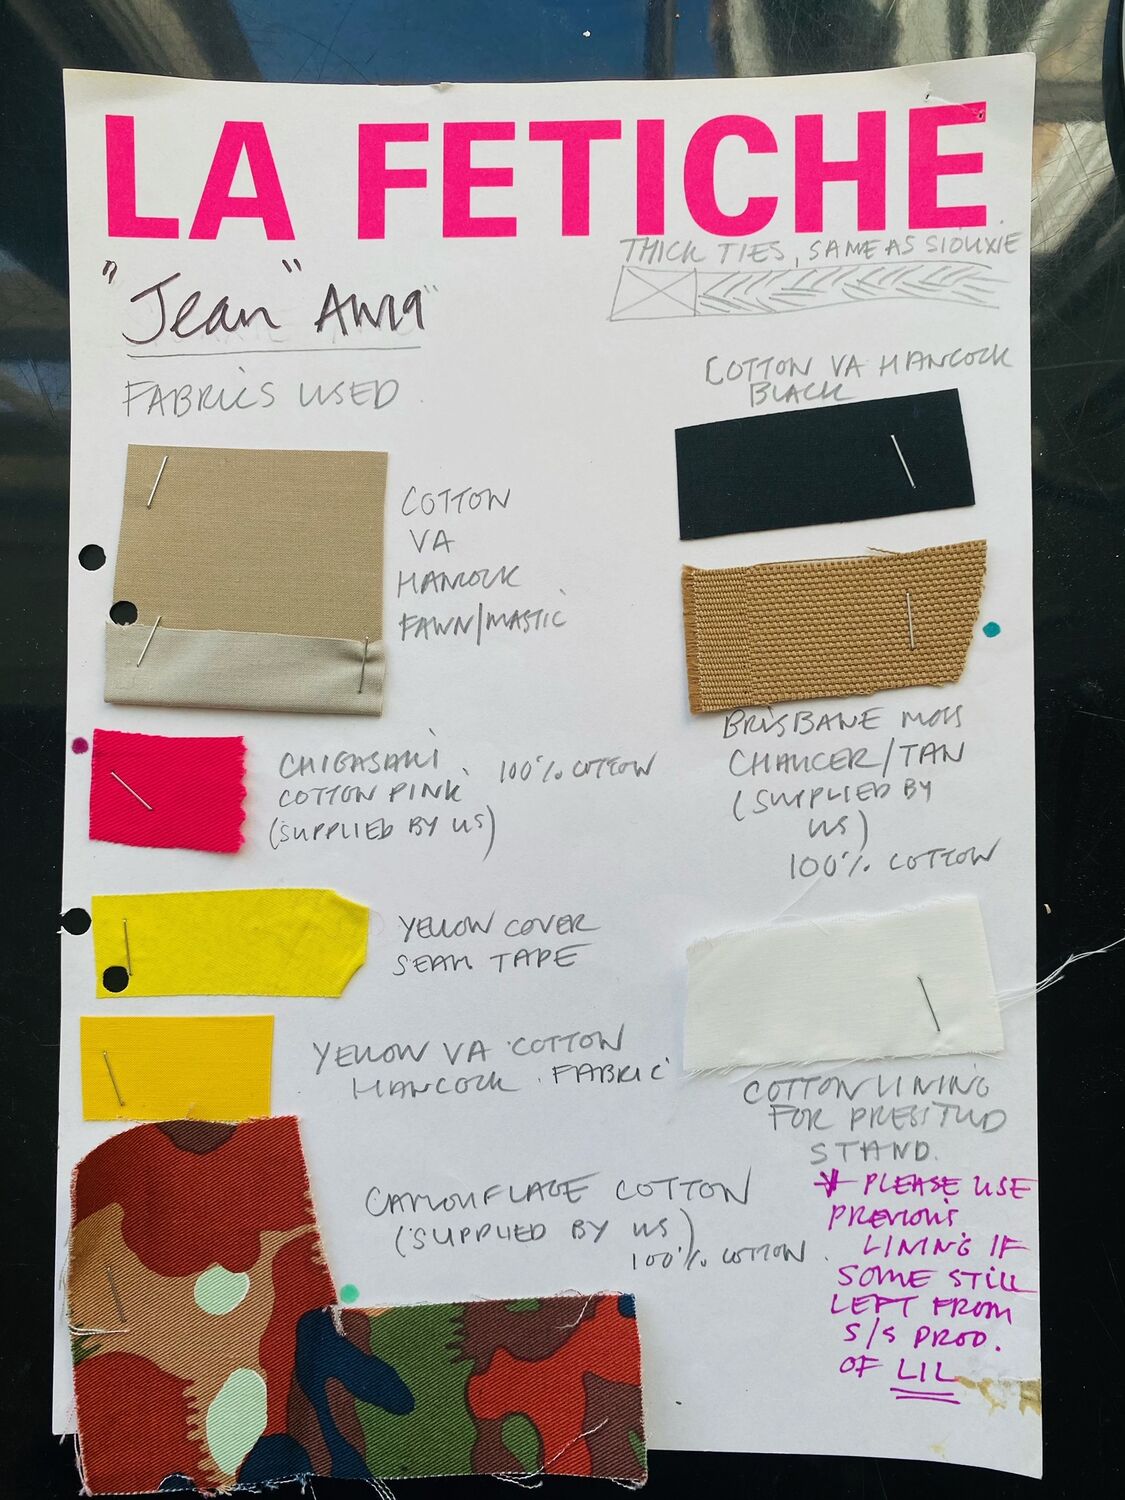 LA FETICHE
THICK TIES, SAME AS SIOUXIE
"Jean"
FABRICS USED
COTTON VA HANCOCK
BLACK
COTTON
VA
HANCOCK
FAWN/MASTIC
BRISBANE MOSS
CHAUCER/TAN
(SUPPLIED BY
US)
100% COTTON
CHIGASAKI
COTTON PINK. 100% COTTON
(SUPPLIED BY US)
YELLOW COVER
SEAM TAPE
YELLOW VA COTTON
HANCOCK FABRIC
COTTON LINING
FOR PRESSTUD
STAND.
* PLEASE USE
PREVIOUS
LINING IF
SOME STILL
LEFT FROM
S/S PROD.
OF LIL
CAMOUFLAGE COTTON
(SUPPLIED BY US)
100% COTTON.